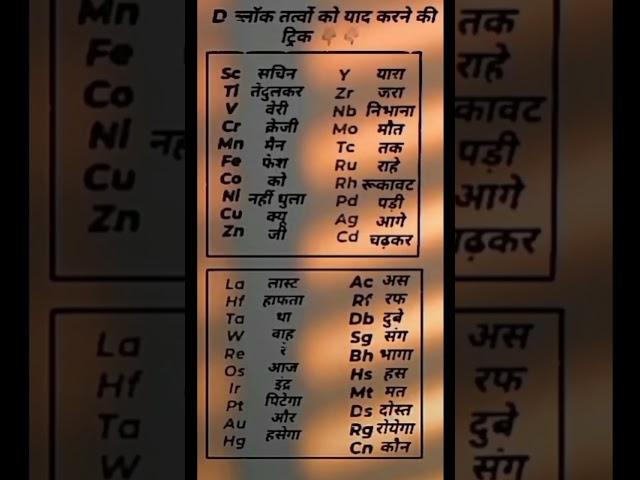 D ब्लॉक तत्वों को याद करने की
ट्रिक 👇👇
Sc सचिन
TI तेंदुलकर
V वेरी
Cr क्रेजी
Mn मैन
Fe फेश
Co को
NI नहीं धुला
Cu क्यू
Zn जी
Y यारा
Zr जरा
Nb निभाना
Mo मौत
Tc तक
Ru राहे
Rh रूकावट
Pd पड़ी
Ag आगे
Cd चढ़कर
La लास्ट
Hf हाफता
Ta था
W वाह
Re रे
Os आज
Ir इंद्र
Pt पिटेगा
Au और
Hg हसेगा
Ac अस
Rf रफ
Db दुबे
Sg संग
Bh भागा
Hs हस
Mt मत
Ds दोस्त
Rg रोयेगा
Cn कौन
Mn
Fe
Co
NI नह
Cu
Zn
La
Hf
Ta
W
तक
राहे
कावट
पड़ी
आगे
ढ़कर
अस
रफ
दुबे
संग